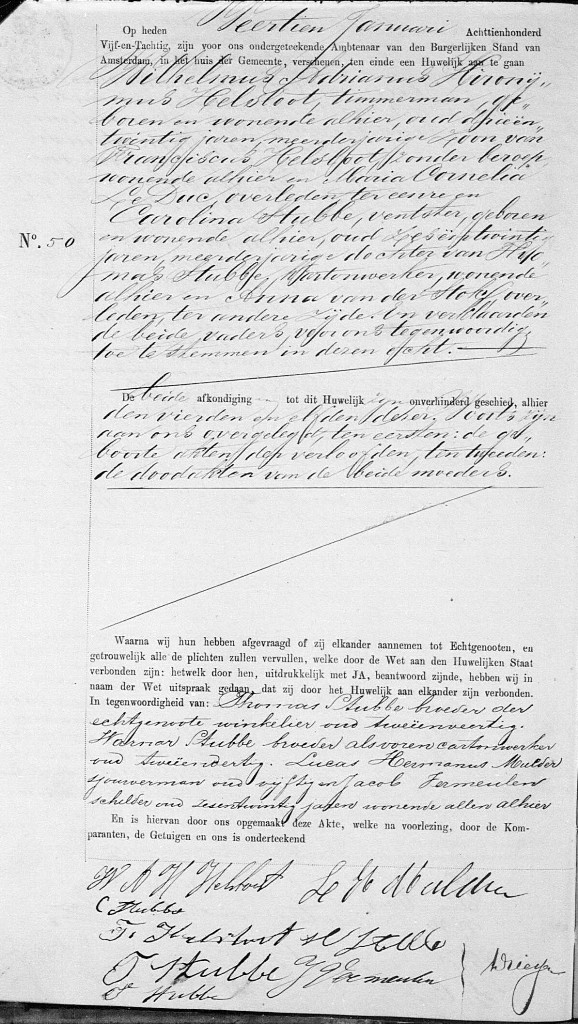 Op heden Veertien Januari Achttienhonderd
Vijf-en-Tachtig, zijn voor ons ondergeteekende Ambtenaar van den Burgerlijken Stand van
Amsterdam, in het huis der Gemeente, verschenen, ten einde een Huwelijk aan te gaan
Wilhelmus Adrianus Hirony„
mus Helsloot, timmerman, ge„
boren en wonende alhier, oud drieën„
twintig jaren, meerderjarige zoon van
Franciscus Helsloot, zonder beroep,
wonende alhier en Maria Cornelia
Le Duc, overleden, ter eenre en
Carolina Stubbe, ventster, geboren
No. 50
en wonende alhier, oud zesëntwintig
jaren, meerderjarige dochter van Tho„
mas Stubbe, kartonwerker, wonende
alhier en Anna van der Stok, over„
leden, ter andere zijde. En verklaarden
de beide vaders, voor ons tegenwoordig
toe te stemmen in dezen echt.
De beide afkondigingen tot dit Huwelijk zijn onverhinderd geschied, alhier
den vierden en elfden dezer. Voorts zijn
aan ons overgelegd, ten eersten: de ge„
boorte akten der verloofden, ten tweeden:
de doodakten van de beide moeders.
Waarna wij hun hebben afgevraagd of zij elkander aannemen tot Echtgenooten, en
getrouwelijk alle de plichten zullen vervullen, welke door de Wet aan den Huwelijken Staat
verbonden zijn: hetwelk door hen, uitdrukkelijk met JA, beantwoord zijnde, hebben wij in
naam der Wet uitspraak gedaan, dat zij door het Huwelijk aan elkander zijn verbonden.
In tegenwoordigheid van: Thomas Stubbe broeder der
echtgenoote winkelier oud tweeënveertig.
Warnar Stubbe broeder als voren cartonwerker
oud tweeëndertig. Lucas Hermanus Mulder
sjouwerman oud vijftig en Jacob Vermeulen
schilder oud zesentwintig jaren wonende allen alhier
En is hiervan door ons opgemaakt deze Akte, welke na voorlezing, door de Kom-
paranten, de Getuigen en ons is onderteekend
W A H Helsloot L H Mulder
C Stubbe
F. Helsloot W Stubbe
T Stubbe J Vermeulen
T Stubbe